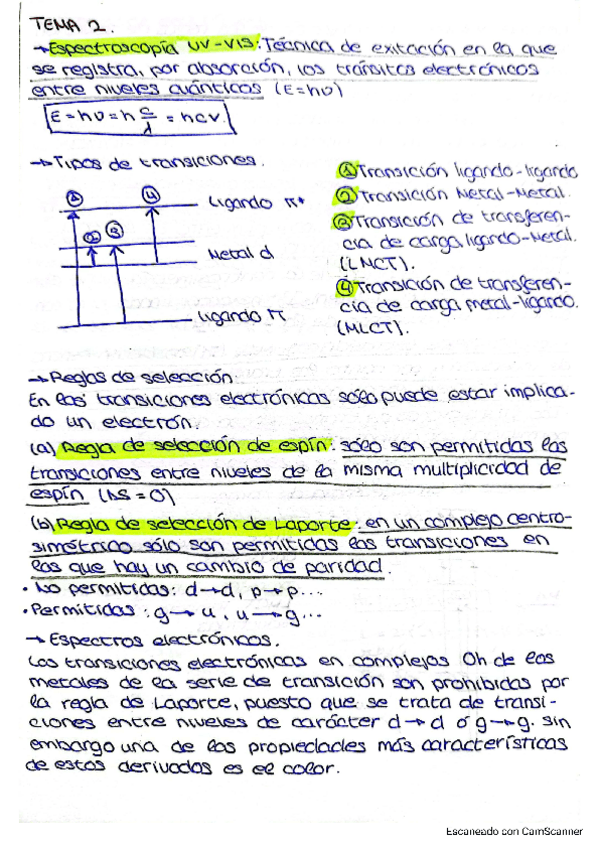 TEMA 2.
→ Espectroscopía UV-VIS: Técnica de exitación en la que
se registra, por absorción, los tránsitos electrónicos
entre niveles cuánticos (E=hν)
E=hν=h c/λ = hcν.
→ Tipos de transiciones.
① Transición ligando-ligando
② Transición Metal-Metal.
③ Transición de transferen-
cia de carga ligando-Metal.
(LMCT).
④ Transición de transferen-
cia de carga metal-ligando.
(MLCT).
① ② ③ ④
Ligando π*
Metal d
Ligando π
→ Reglas de selección:
En las transiciones electrónicas sólo puede estar implica-
do un electrón.
(a) Regla de selección de espín: sólo son permitidas las
transiciones entre niveles de la misma multiplicidad de
espín (ΔS=0)
(b) Regla de selección de Laporte: en un complejo centro-
simétrico sólo son permitidas las transiciones en
las que hay un cambio de paridad.
• No permitidas: d→d, p→p...
• Permitidas: g→u, u→g...
→ Espectros electrónicos.
Las transiciones electrónicas en complejos Oh de los
metales de la serie de transición son prohibidas por
la regla de Laporte, puesto que se trata de transi-
ciones entre niveles de carácter d→d ó g→g. sin
embargo una de las propiedades más características
de estos derivados es el color.
Escaneado con CamScanner